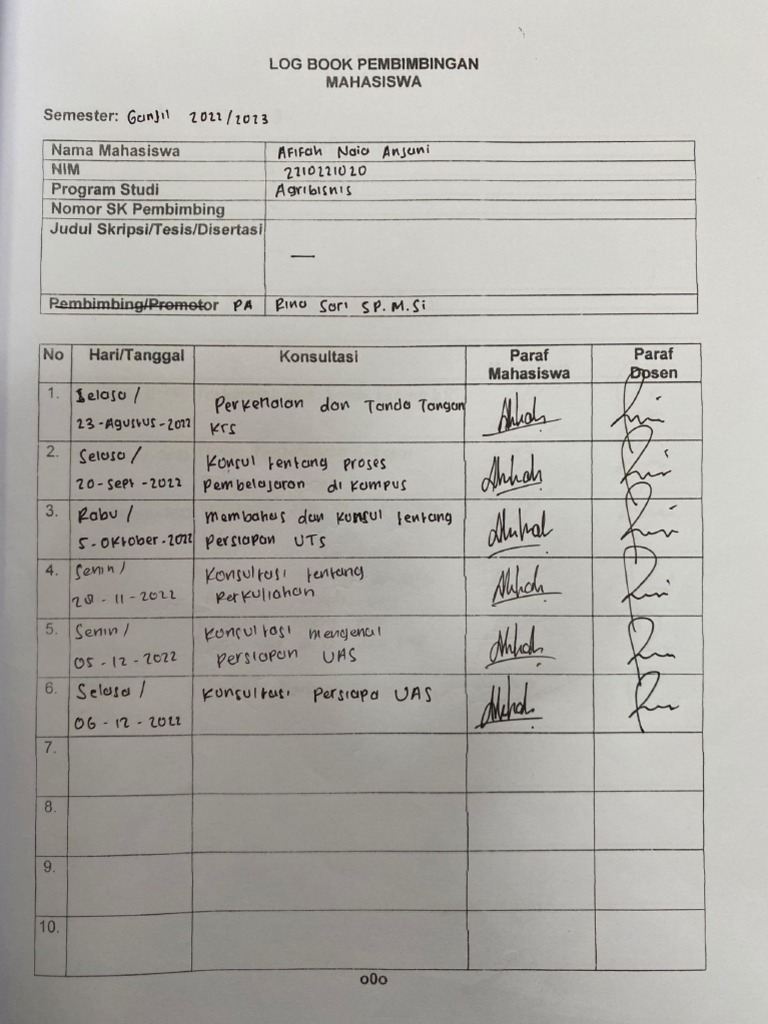 LOG BOOK PEMBIMBINGAN
MAHASISWA
Semester: Ganjil 2022/2023
Nama Mahasiswa Afifah Naia Anjani
NIM 2210221020
Program Studi Agribisnis
Nomor SK Pembimbing
Judul Skripsi/Tesis/Disertasi —
Pembimbing/Promotor PA Rina Sari SP. M. Si
No Hari/Tanggal Konsultasi Paraf Mahasiswa Paraf Dosen
1. Selasa / Perkenalan dan Tanda Tangan
23 - Agustus - 2022 KRS
2. Selasa / Konsul tentang proses
20 - Sept - 2022 Pembelajaran di Kampus
3. Rabu / Membahas dan Konsul tentang
5 - Oktober - 2022 Persiapan UTS
4. Senin / Konsultasi tentang
28 - 11 - 2022 Perkuliahan
5. Senin / Konsultasi mengenai
05 - 12 - 2022 Persiapan UAS
6. Selasa / Konsultasi Persiapa UAS
06 - 12 - 2022
7.
8.
9.
10.
o0o